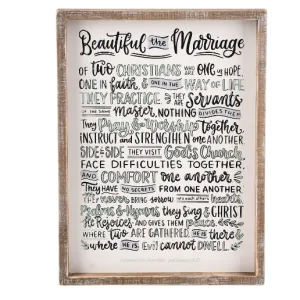 Beautiful the Marriage
OF TWO CHRISTIANS WHO ARE ONE IN HOPE,
ONE IN FAITH, & ONE IN THE WAY OF LIFE
THEY PRACTICE. THEY ARE SERVANTS
OF THE SAME MASTER, NOTHING DIVIDES THEM
THEY Pray & Worship TOGETHER,
INSTRUCT AND STRENGTHEN ONE ANOTHER.
SIDE & SIDE THEY VISIT God's Church,
FACE DIFFICULTIES TOGETHER,
AND COMFORT one another.
THEY HAVE NO SECRETS FROM ONE ANOTHER
THEY NEVER BRING sorrow TO EACH OTHER'S hearts
Psalms & Hymns they Sing & CHRIST
He REJOICES AND GIVES THEM peace.
WHERE TWO ARE GATHERED, HE IS there &
where HE IS, Evil cannot DWELL.